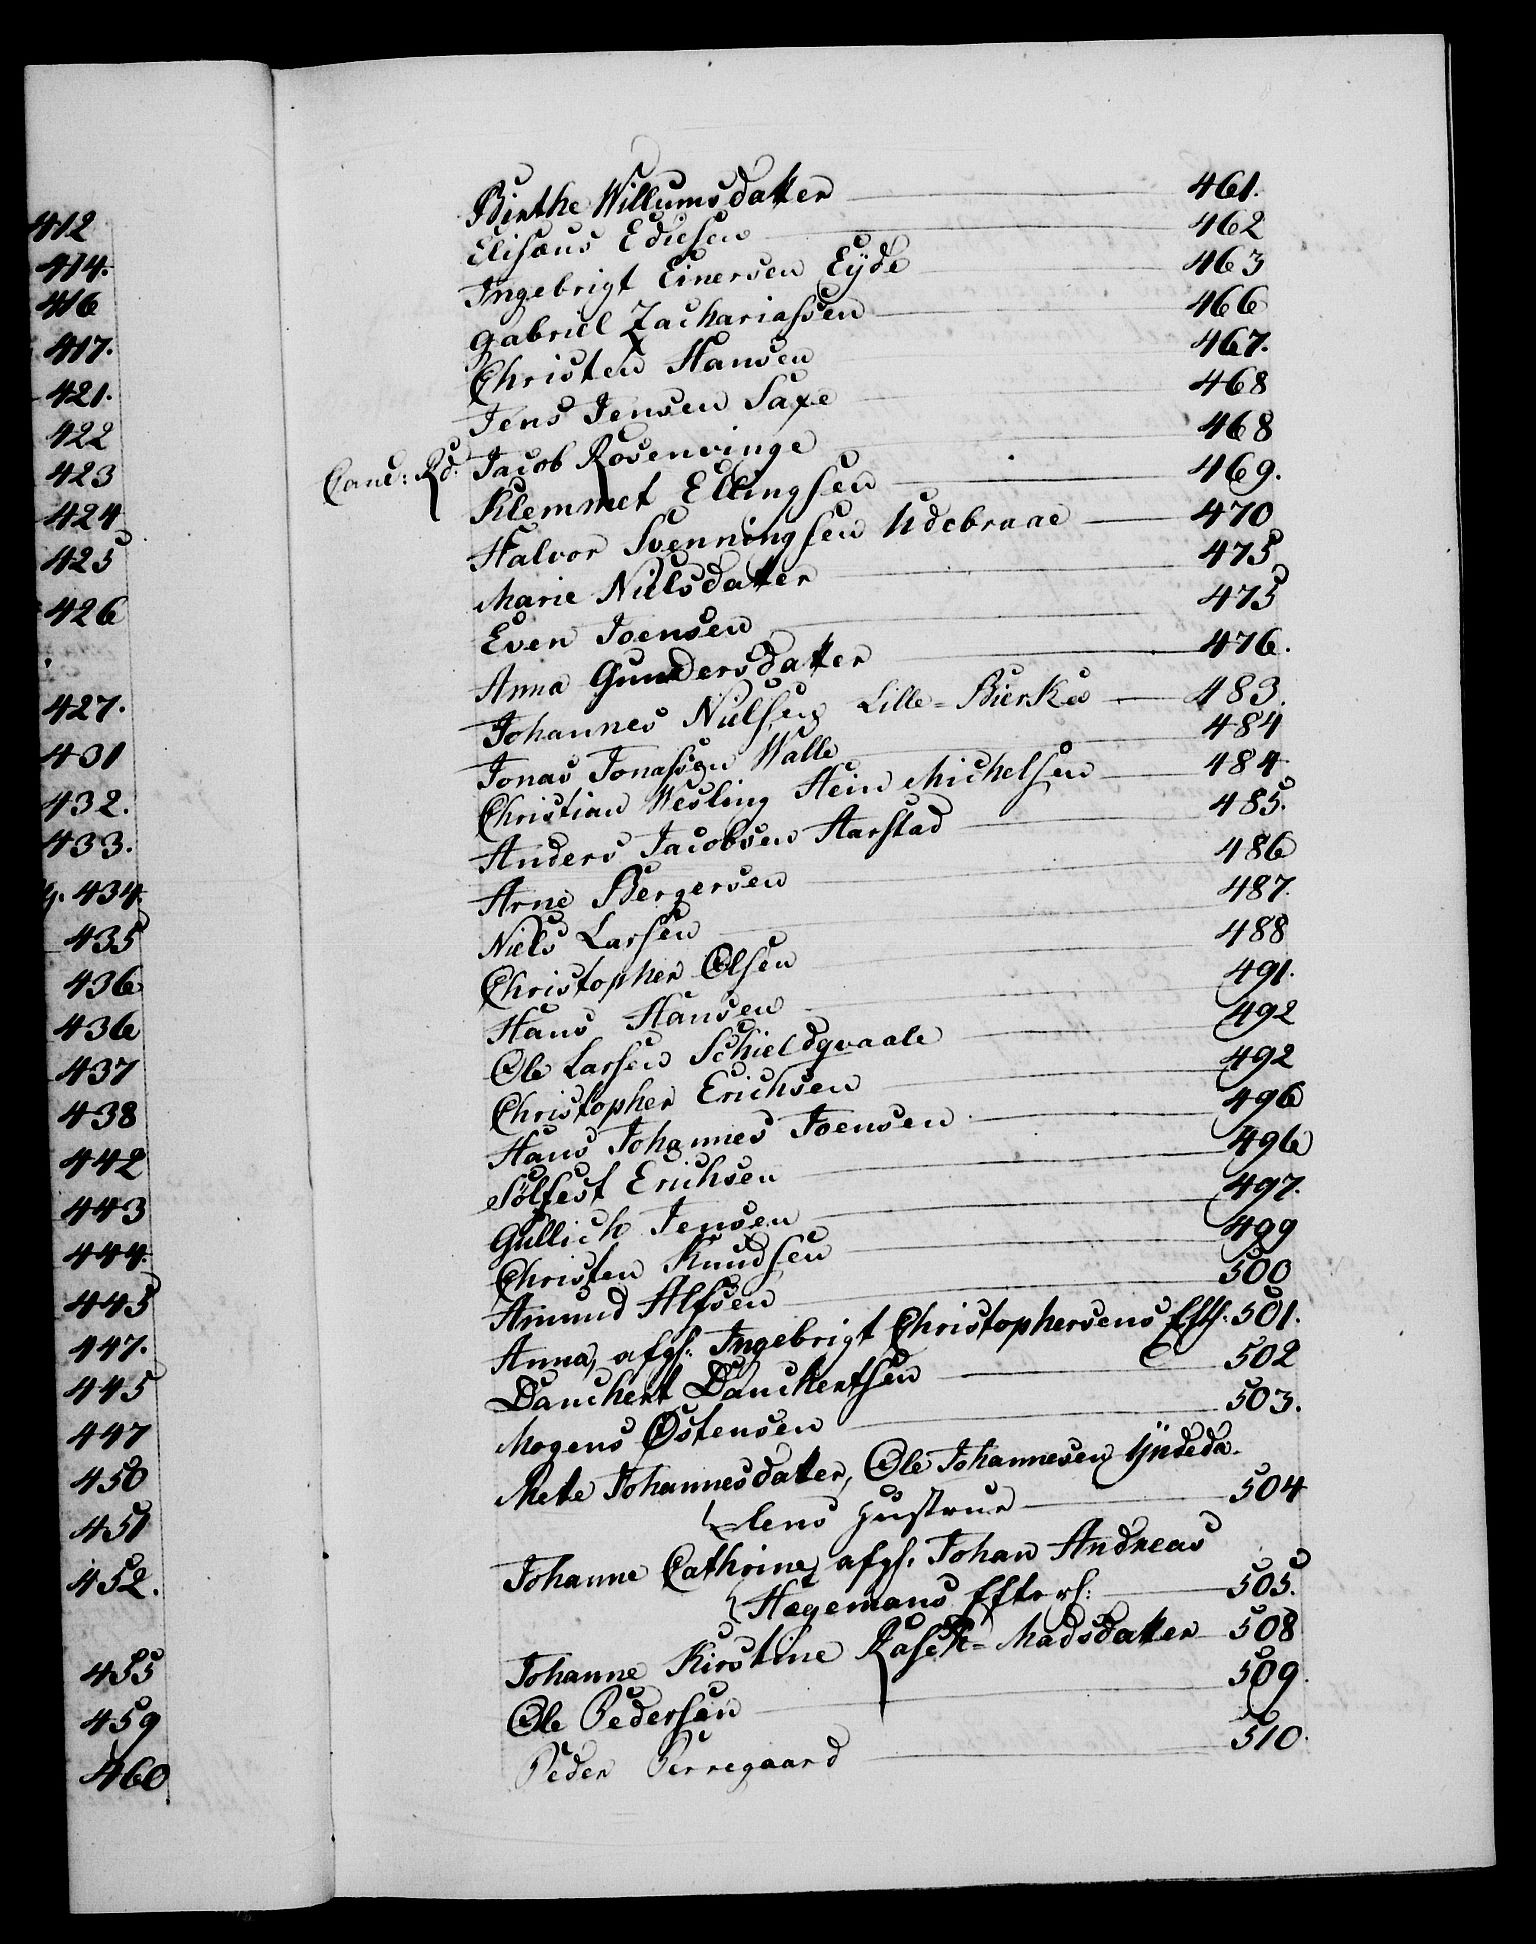 412
414.
416
417.
421.
422
423
424
425
426
427.
431
432.
433.
434.
435
436
436
437
438
442
443
444.
445
447.
445
447
450
451
452.
455
459
460
Birthe Willumsdatter 461.
Elisæus Edisen 462
Ingebrigt Einersen Eÿde 463
Gabriel Zachariassen 466
Christen Hansen 467.
Jens Jensen Saxe 468
Canc: Rd. Jacob Rosenvinge 468
Klemmet Ellingsen 469.
Halvor Svenningsen Udebraae 470
Marie Nielsdatter 475
Even Joensen 475
Anna Gundersdatter 476.
Johannes Nielsen Lille-Bierke 483.
Jonas Jonassen Walle 484
Christian Wesling Hein Michelsen 484
Anders Jacobsen Aarstad 485.
Arne Bergersen 486
Niels Larsen 487.
Christopher Olsen 488
Hans Hansen 491.
Ole Larsen Schieldqvaale 492
Christopher Erichsen 492
Hans Johannes Joensen 496
Sølfest Erichsen 496
Gullich Jensen 497.
Christen Knudsen 499
Amund Alfsen 500
Anna, afgs: Ingebrigt Christophersens Eftl. 501.
Danchert Danchertsen 502
Mogens Østensen 503.
Mete Johannesdatter, Ole Johannesen Ÿndeda-
lens Hustrue 504
Johanne Cathrine, afgs. Johan Andreas
Hægemans Efterl: 505.
Johanne Kirstine Rasch-Madsdatter 508
Ole Pedersen 509.
Peder Perregaard 510.